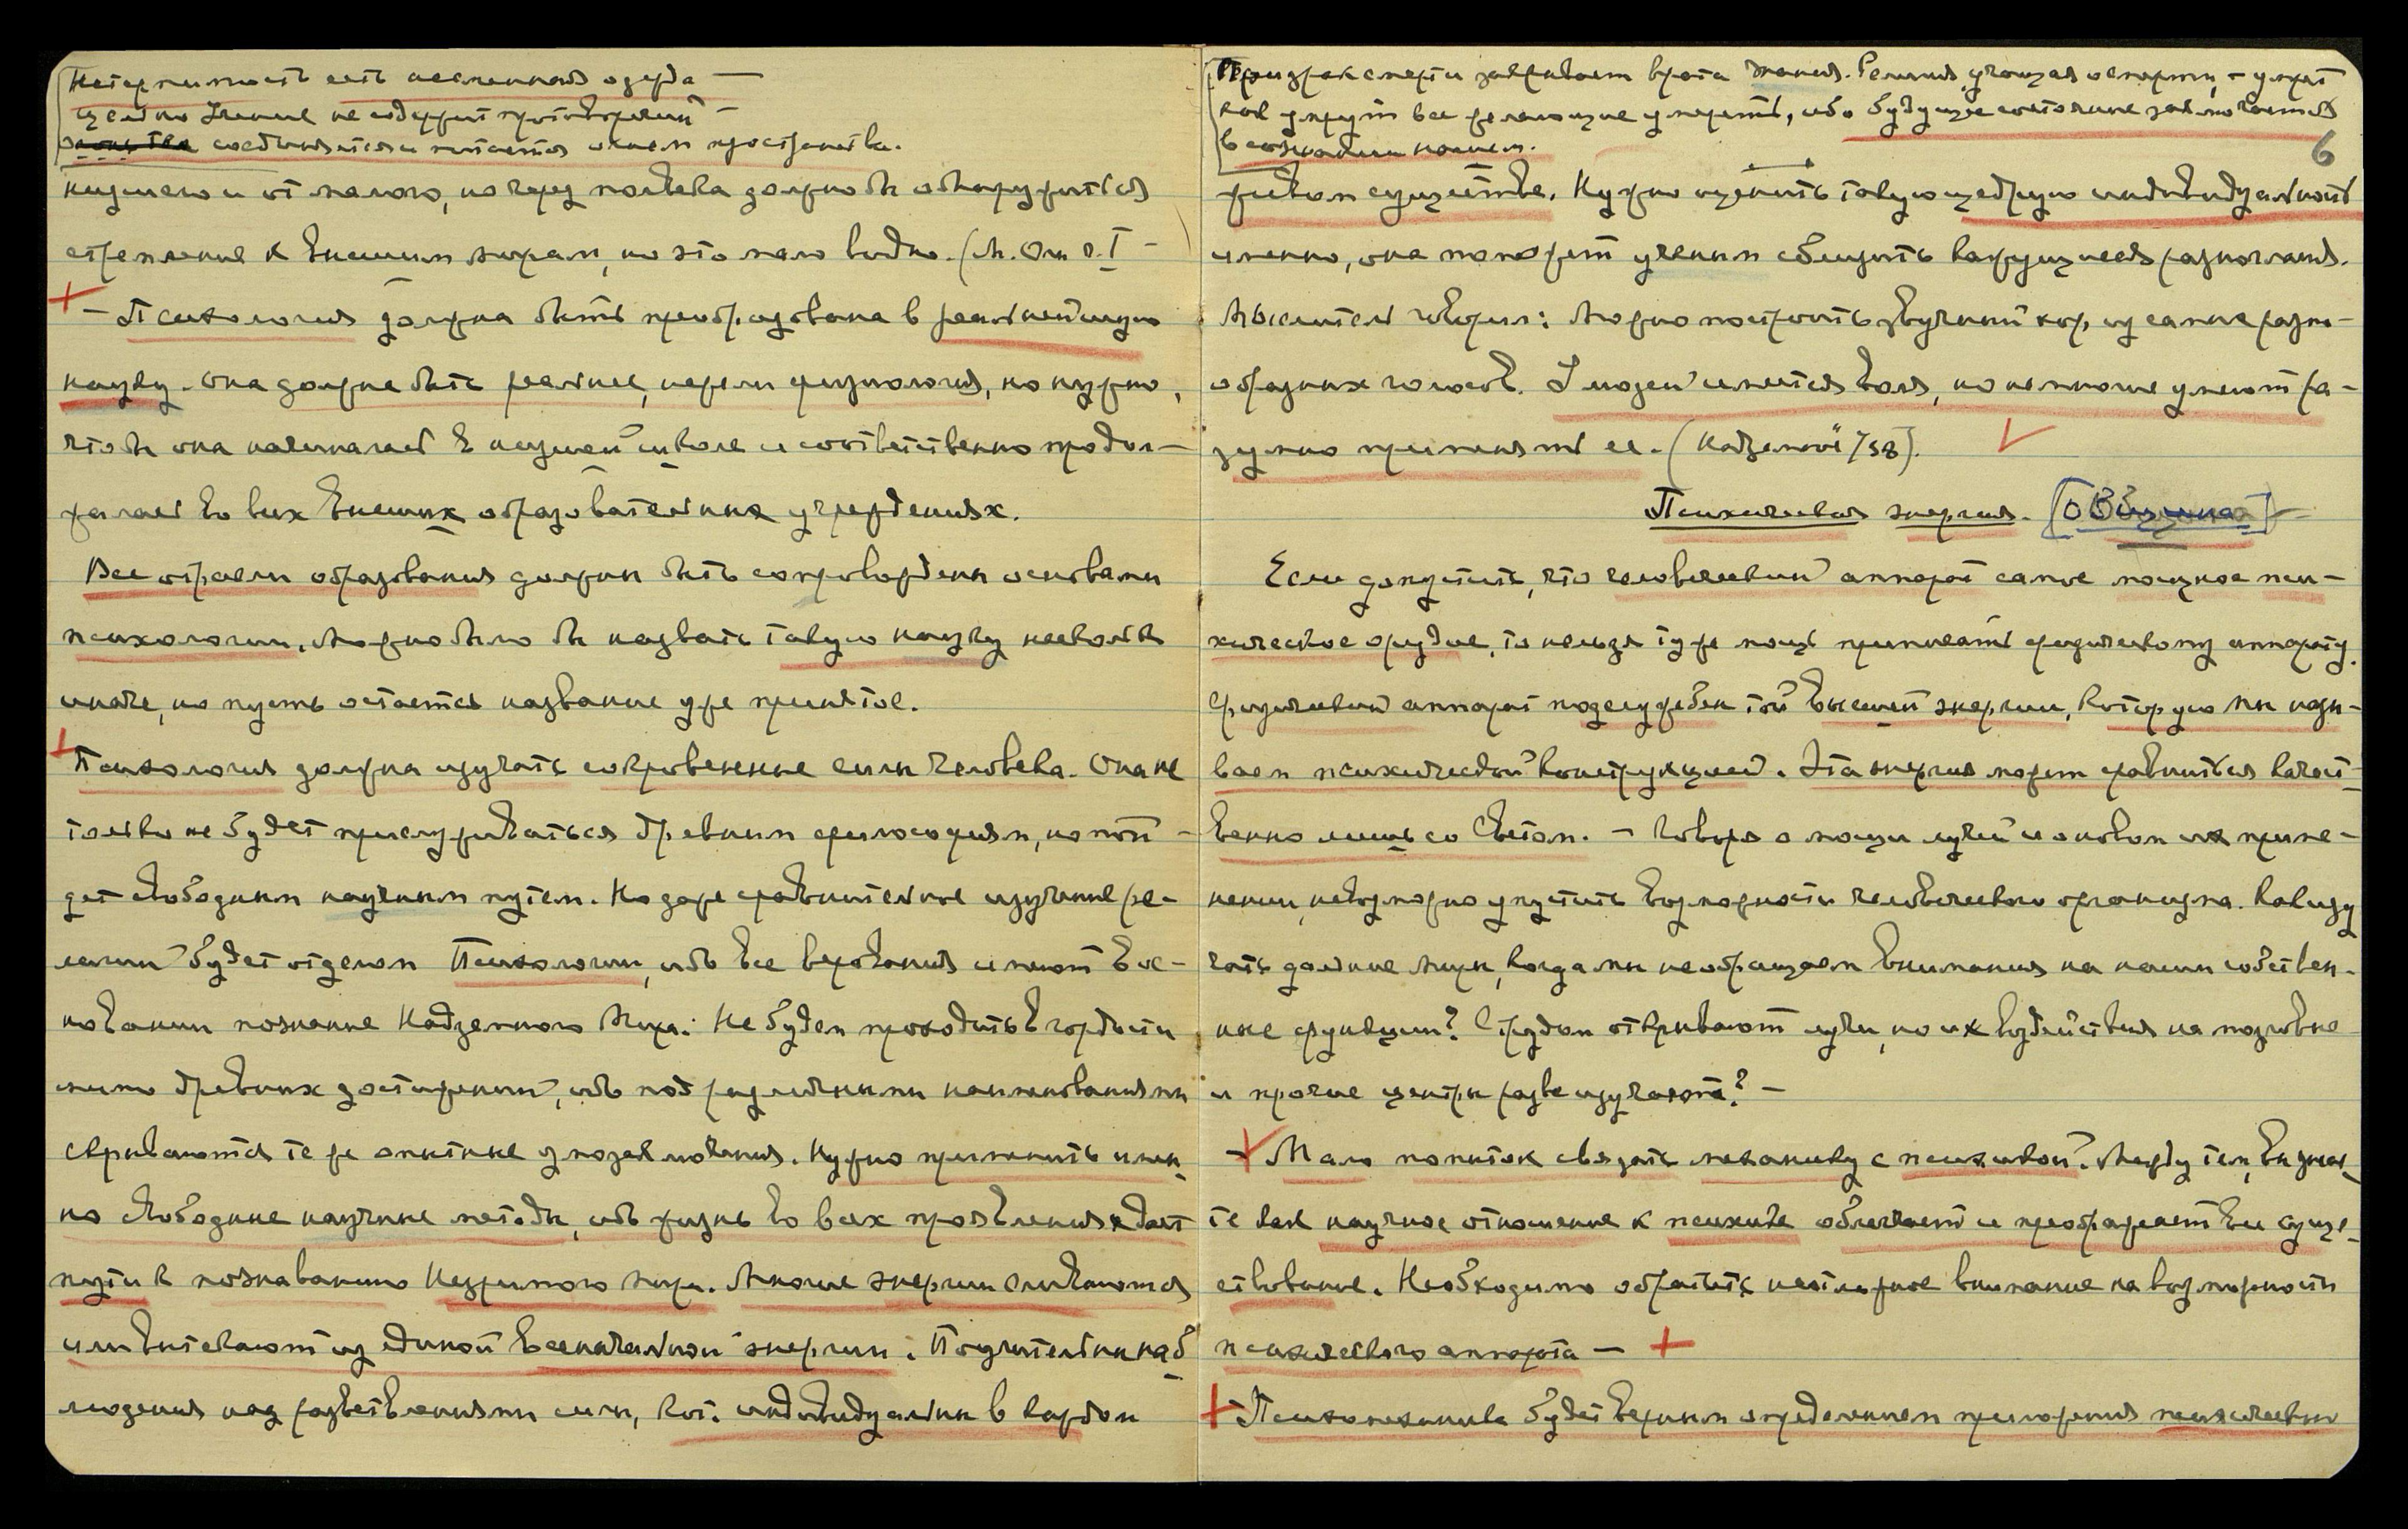 Нетерпимость есть несменная одежда —
цельно Учение не содержит противоречий —
соединяется и питается огнем пространства.
низшего и от малого, но через полвека должно бы обнаружиться
стремление к Внешним мирам, но это мало видно. (М. Оги
+ — Психология должна быть преобразована в реальнейшую
науку. Она должна быть реальнее, нежели физиология, но нужно,
чтобы она началась в низшей школе и соответственно продол-
жалась во всех Высших образовательных учреждениях.
Все отрасли образования должны быть сопровождены основами
психологии. Можно было бы назвать такую науку несколько
иначе, но пусть остается название уже принятое.
+ Психология должна изучать сокровенные силы человека. Она не
только не будет прислуживаться древним философиям, но пой-
дет свободным научным путем. Но даже сравнительное изучение ре-
лигий будет отделом Психологии, ибо все верования имеют в ос-
новании познание Надземного Мира. Не будем проходить в гордости
мимо древних достижений, ибо под различными наименованиями
скрываются те же опытные умозаключения. Нужно применить имен-
но свободные научные методы, ибо жизнь во всех проявлениях дает
пути к познаванию Незримого мира. Многие энергии сливаются
или вытекают из единой Всеначальной энергии. Поучительны наб-
людения над разветвлениями силы, кот. индивидуальны в каждом
Призрак смерти закрывает врата знания. Религия, учащая о смерти, — умрет
как умрут все желающие умереть, ибо будущее состояние заключается
в сознании нашем.
6
живом существе. Нужно оценить такую щедрую индивидуальность
именно, она поможет ученым обобщить кажущиеся разногласия.
Мыслитель говорил: Можно построить звучный хор из самых разно-
образных голосов. У людей имеется воля, но немногие умеют ра-
зумно применять ее. (Надземное /58).
Психическая энергия.
Если допустить, что человеческий аппарат самое мощное пси-
хическое орудие, то нельзя ту же мощь приписать физическому аппарату.
Физический аппарат подслужебен той Высшей энергии, которую мы назы-
ваем психической конструкцией. Эта энергия может сравниться качест-
венно лишь со Светом. — Говоря о мощи лучей и о новом их приме-
нении, невозможно упустить возможности человеческого организма. Как изу
чать дальние миры, когда мы не обращаем внимания на наши собствен-
ные функции? С трудом открывают лучи, но их воздействия на мозговые
и прочие центры разве изучаются? —
+ Мало попыток связать механику с психикой. Между тем, Вы знае-
те как научное отношение к психике облегчает и преображает Вы суще-
ствование. Необходимо обратить неотложное внимание на возможности
психического аппарата — +
+ Психомеханика будет верным определением приложения психической